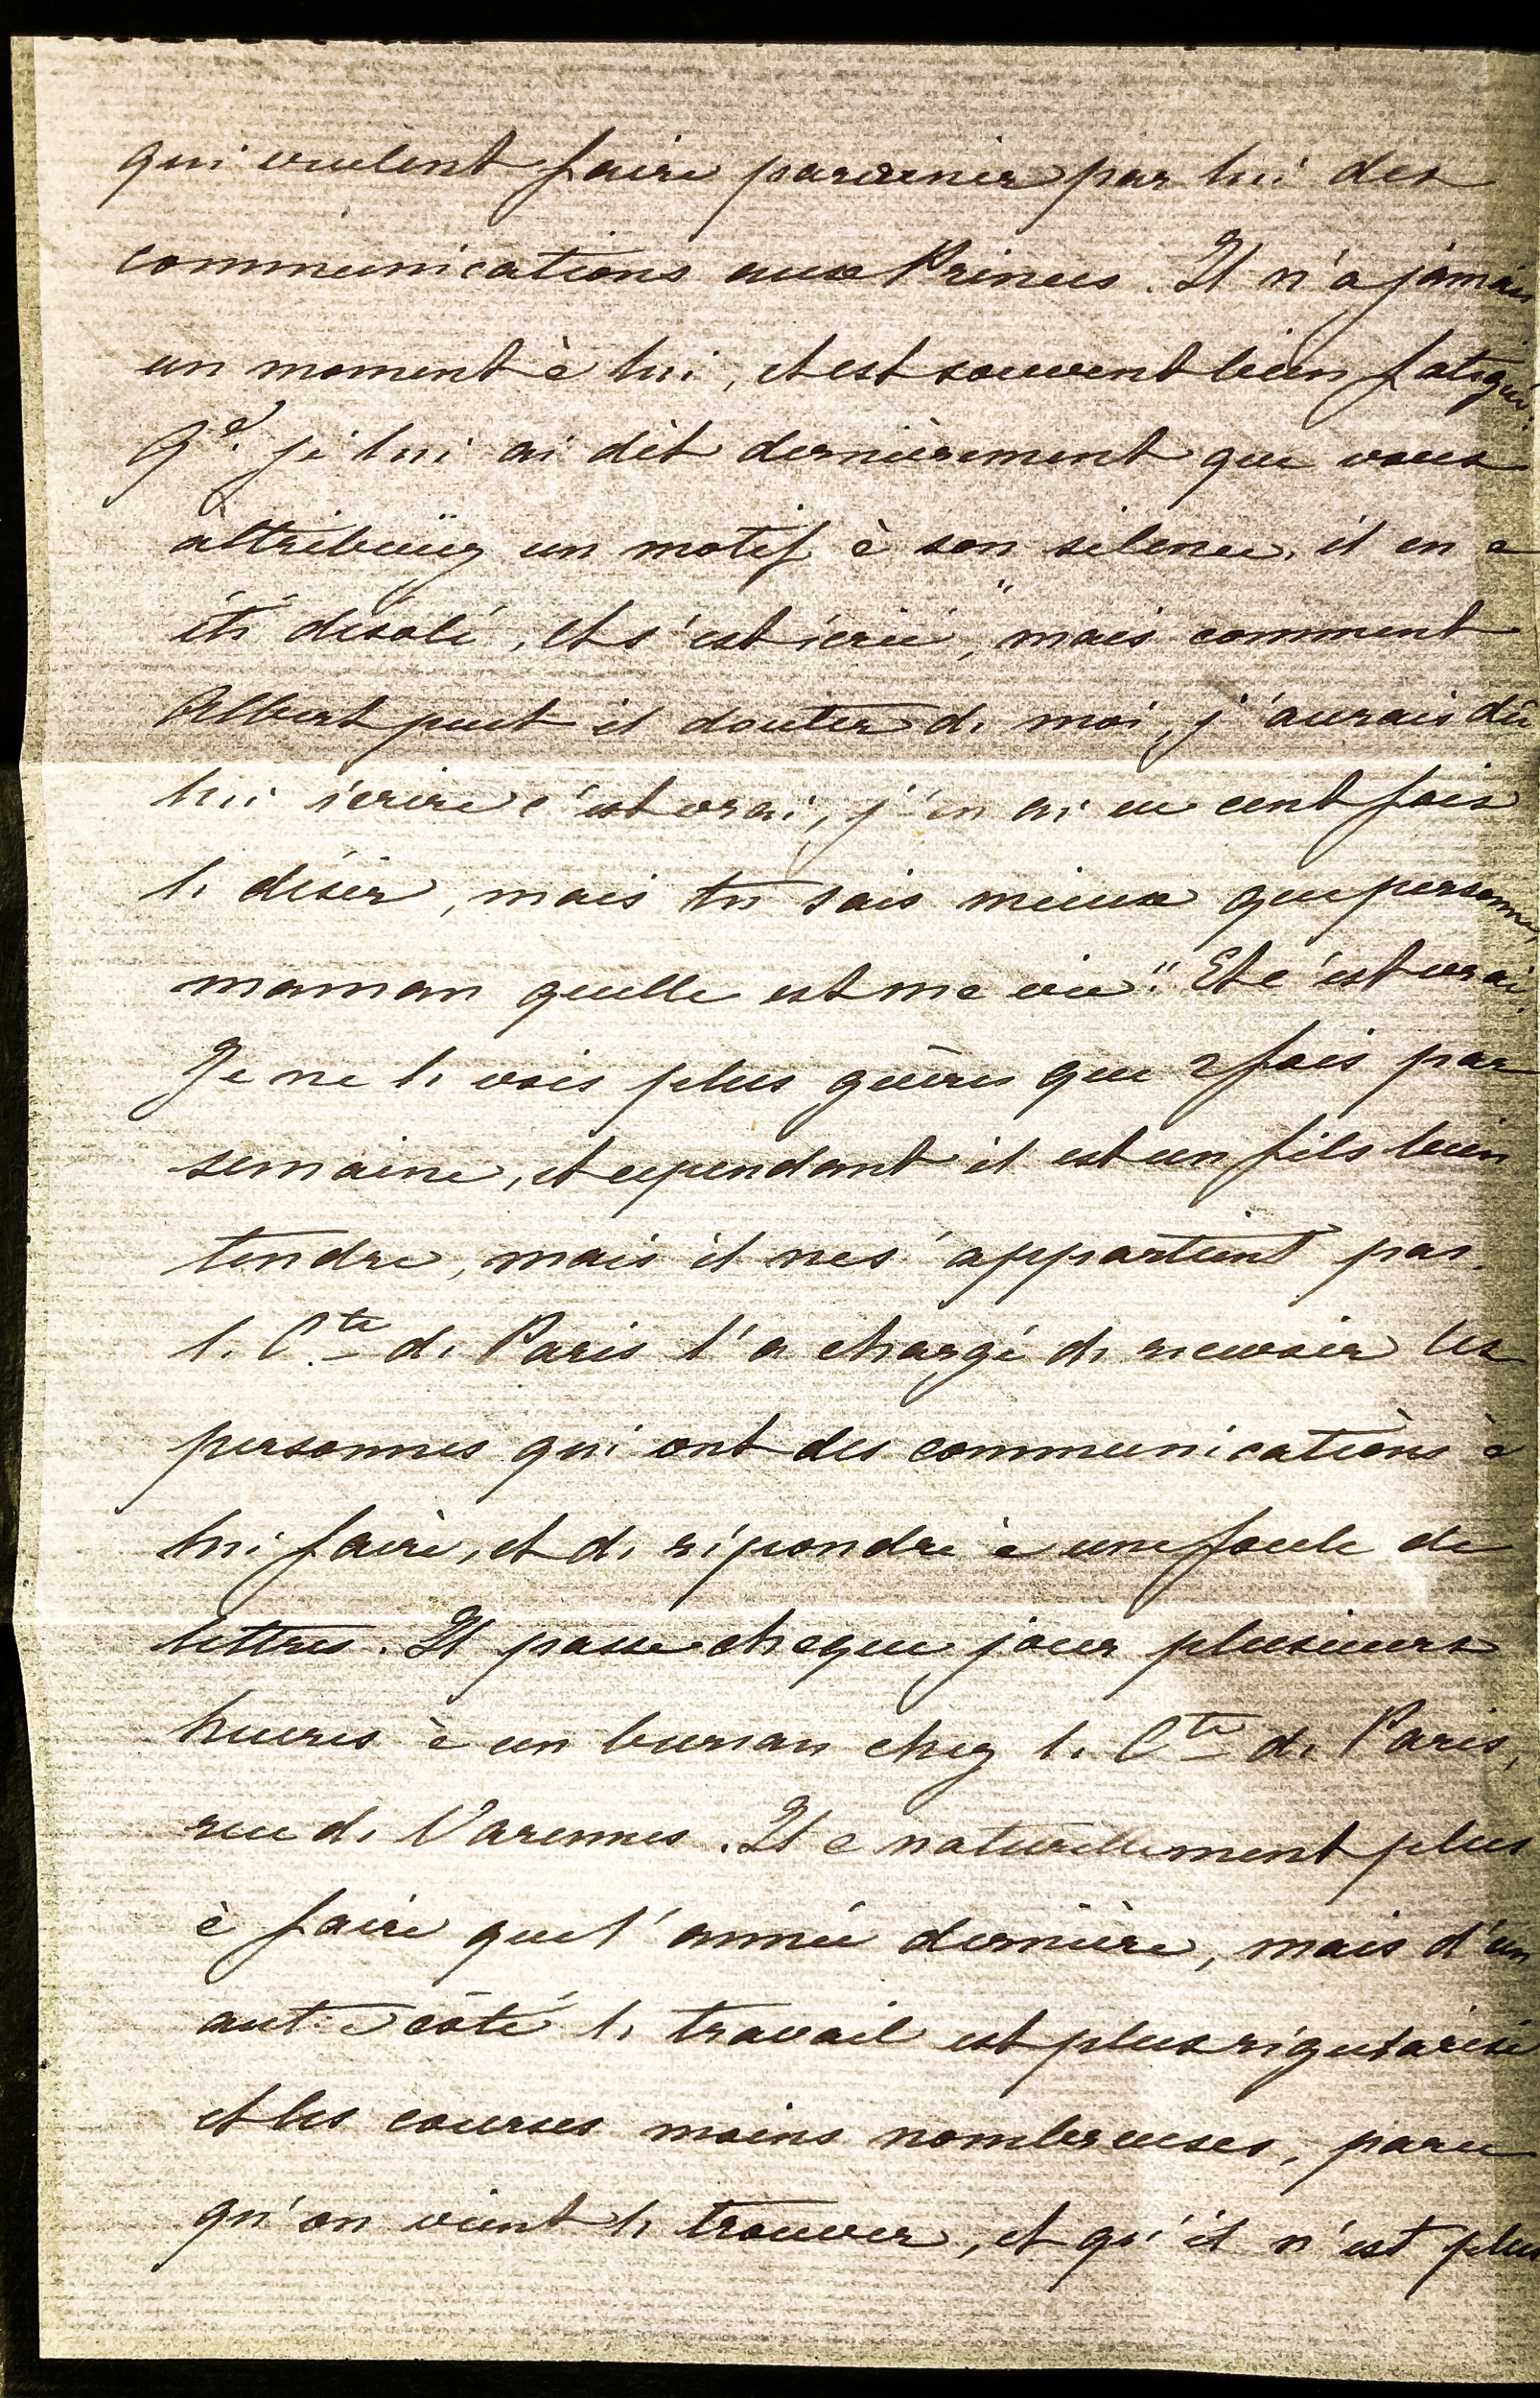 qui veulent faire parvenir par lui des
communications aux Princes. Il n'a jamais
un moment à lui, et est souvent bien fatigué.
Qd. je lui ai dit dernièrement que vous
attribuïez un motif à son silence, il en a
été désolé, et s'est écrié, "mais comment
Albert peut il douter de moi, j'aurais dû
lui écrire c'est vrai, j'en ai eu cent fois
le désir, mais tu sais mieux que personne,
maman quelle est ma vie". Et c'est vrai.
Je ne le vois plus guères que 2 fois par
semaine, et cependant il est un fils bien
tendre, mais il ne s'appartient pas.
le Cte de Paris l'a chargé de recevoir les
personnes qui ont des communications à
lui faire, et de répondre à une foule de
lettres. Il passe chaque jour plusieurs
heures à un bureau chez le Cte de Paris,
rue de Varennes. Il a naturellement plus
à faire que l'année dernière, mais d'un
autre côté le travail est plus régularisé
et les courses moins nombreuses, parce
qu'on vient le trouver, et qu'il n'est plus